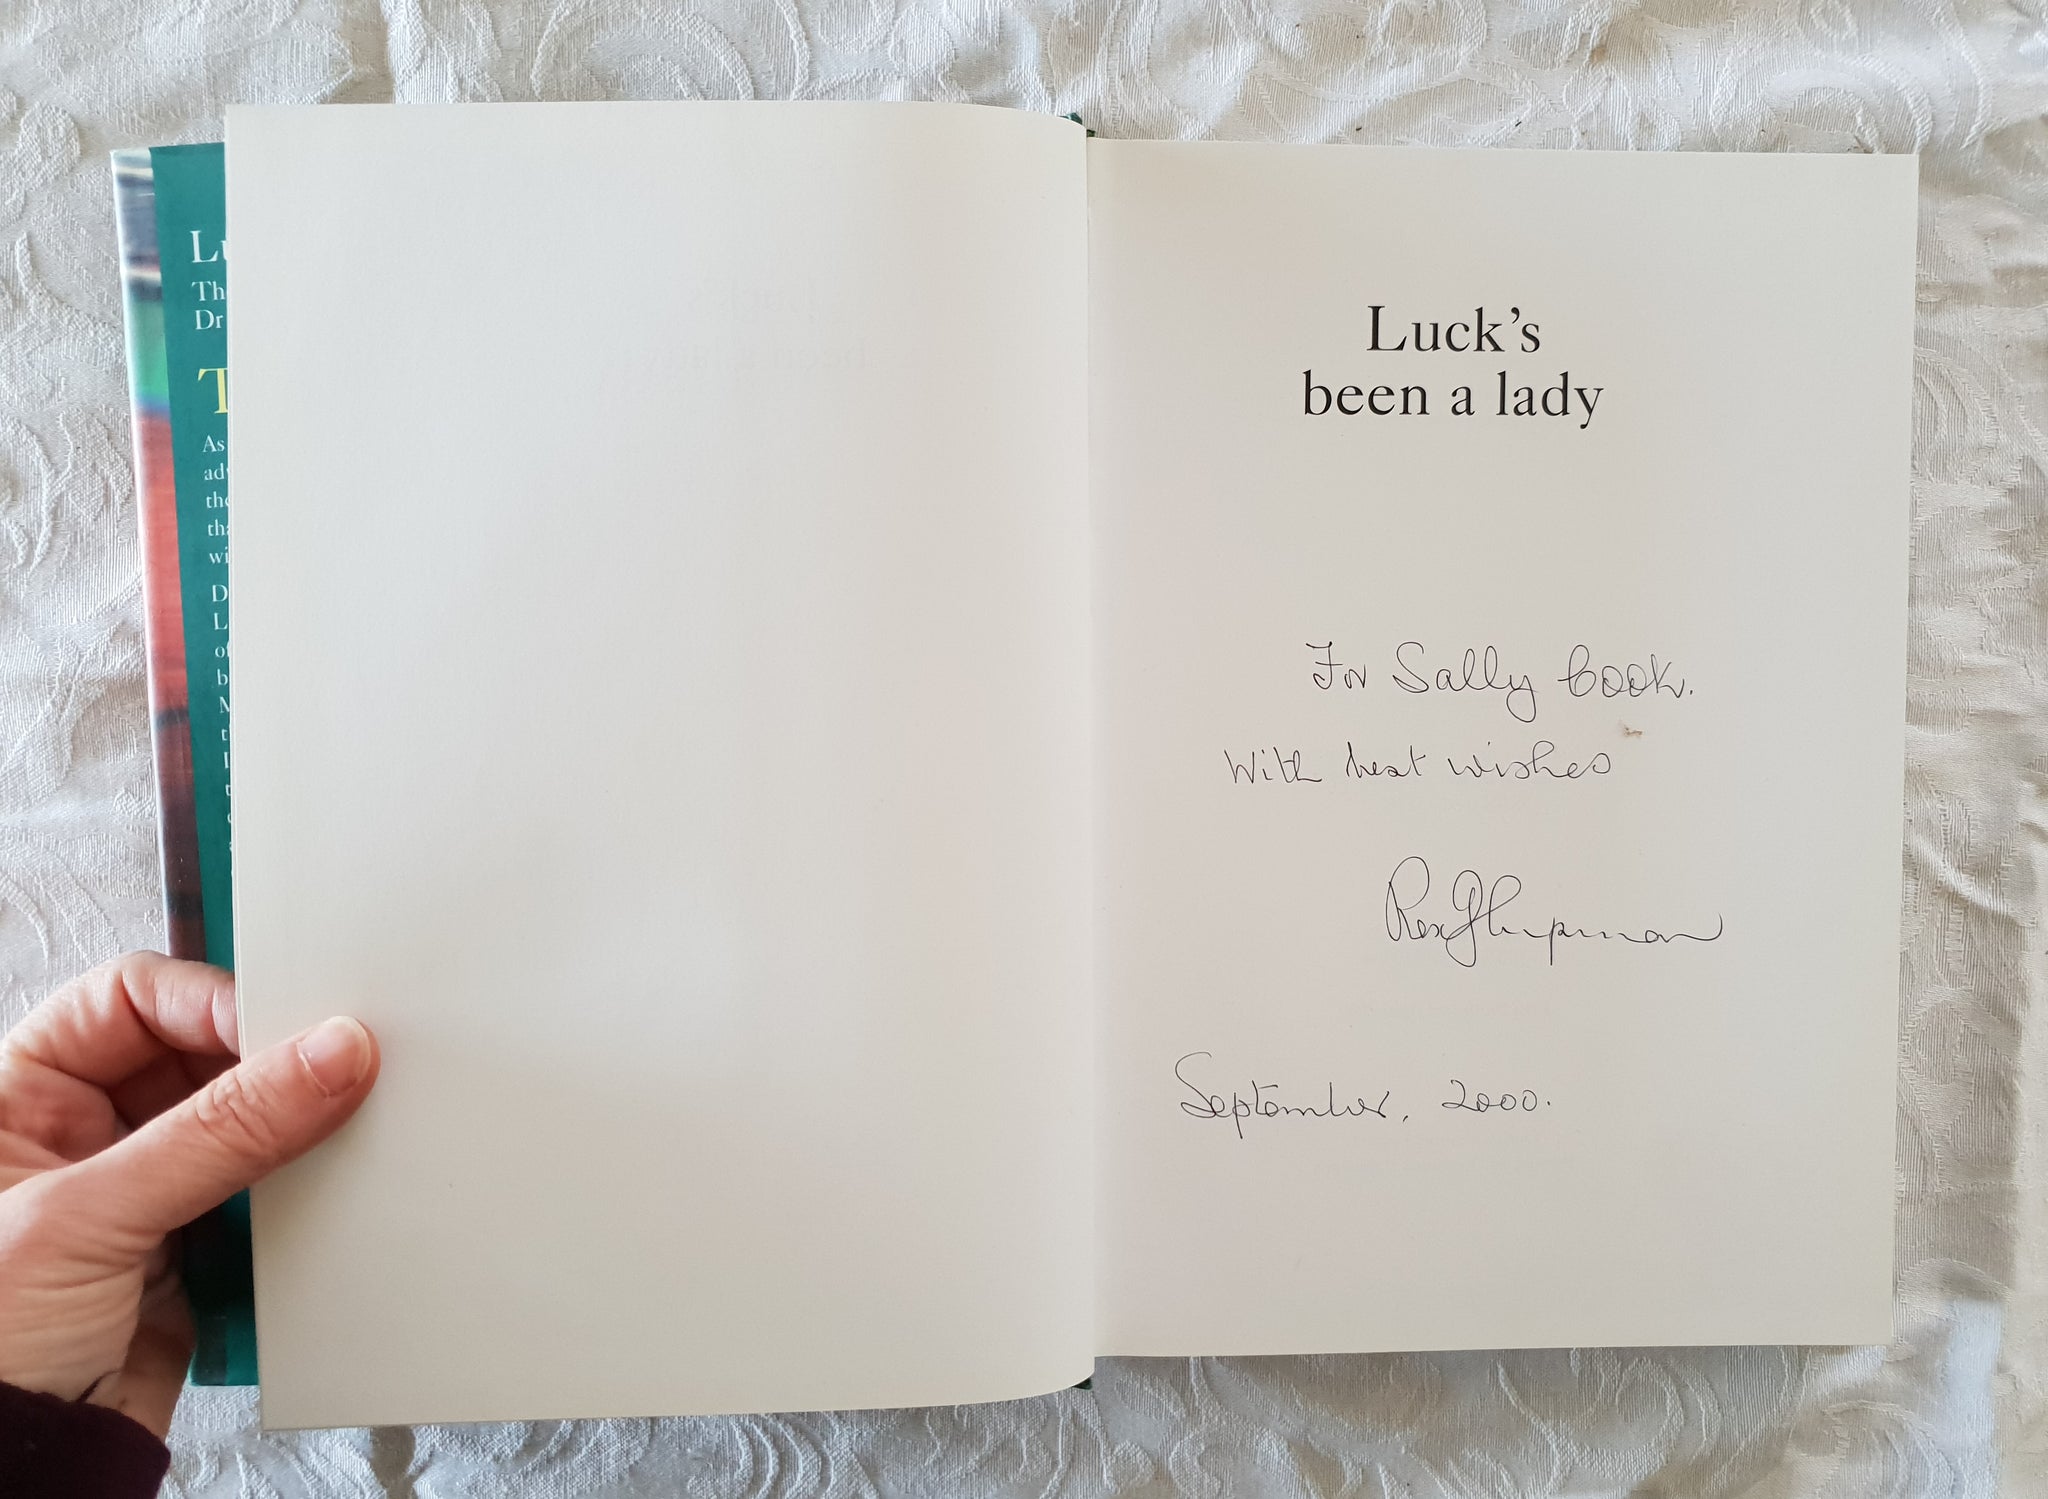 Lu
The
Dr
T
As
adv
the
tha
wi
D
L
of
b
M
t
Luck's
been a lady
For Sally Cook.
With best wishes
Rex J Chipman
September, 2000.